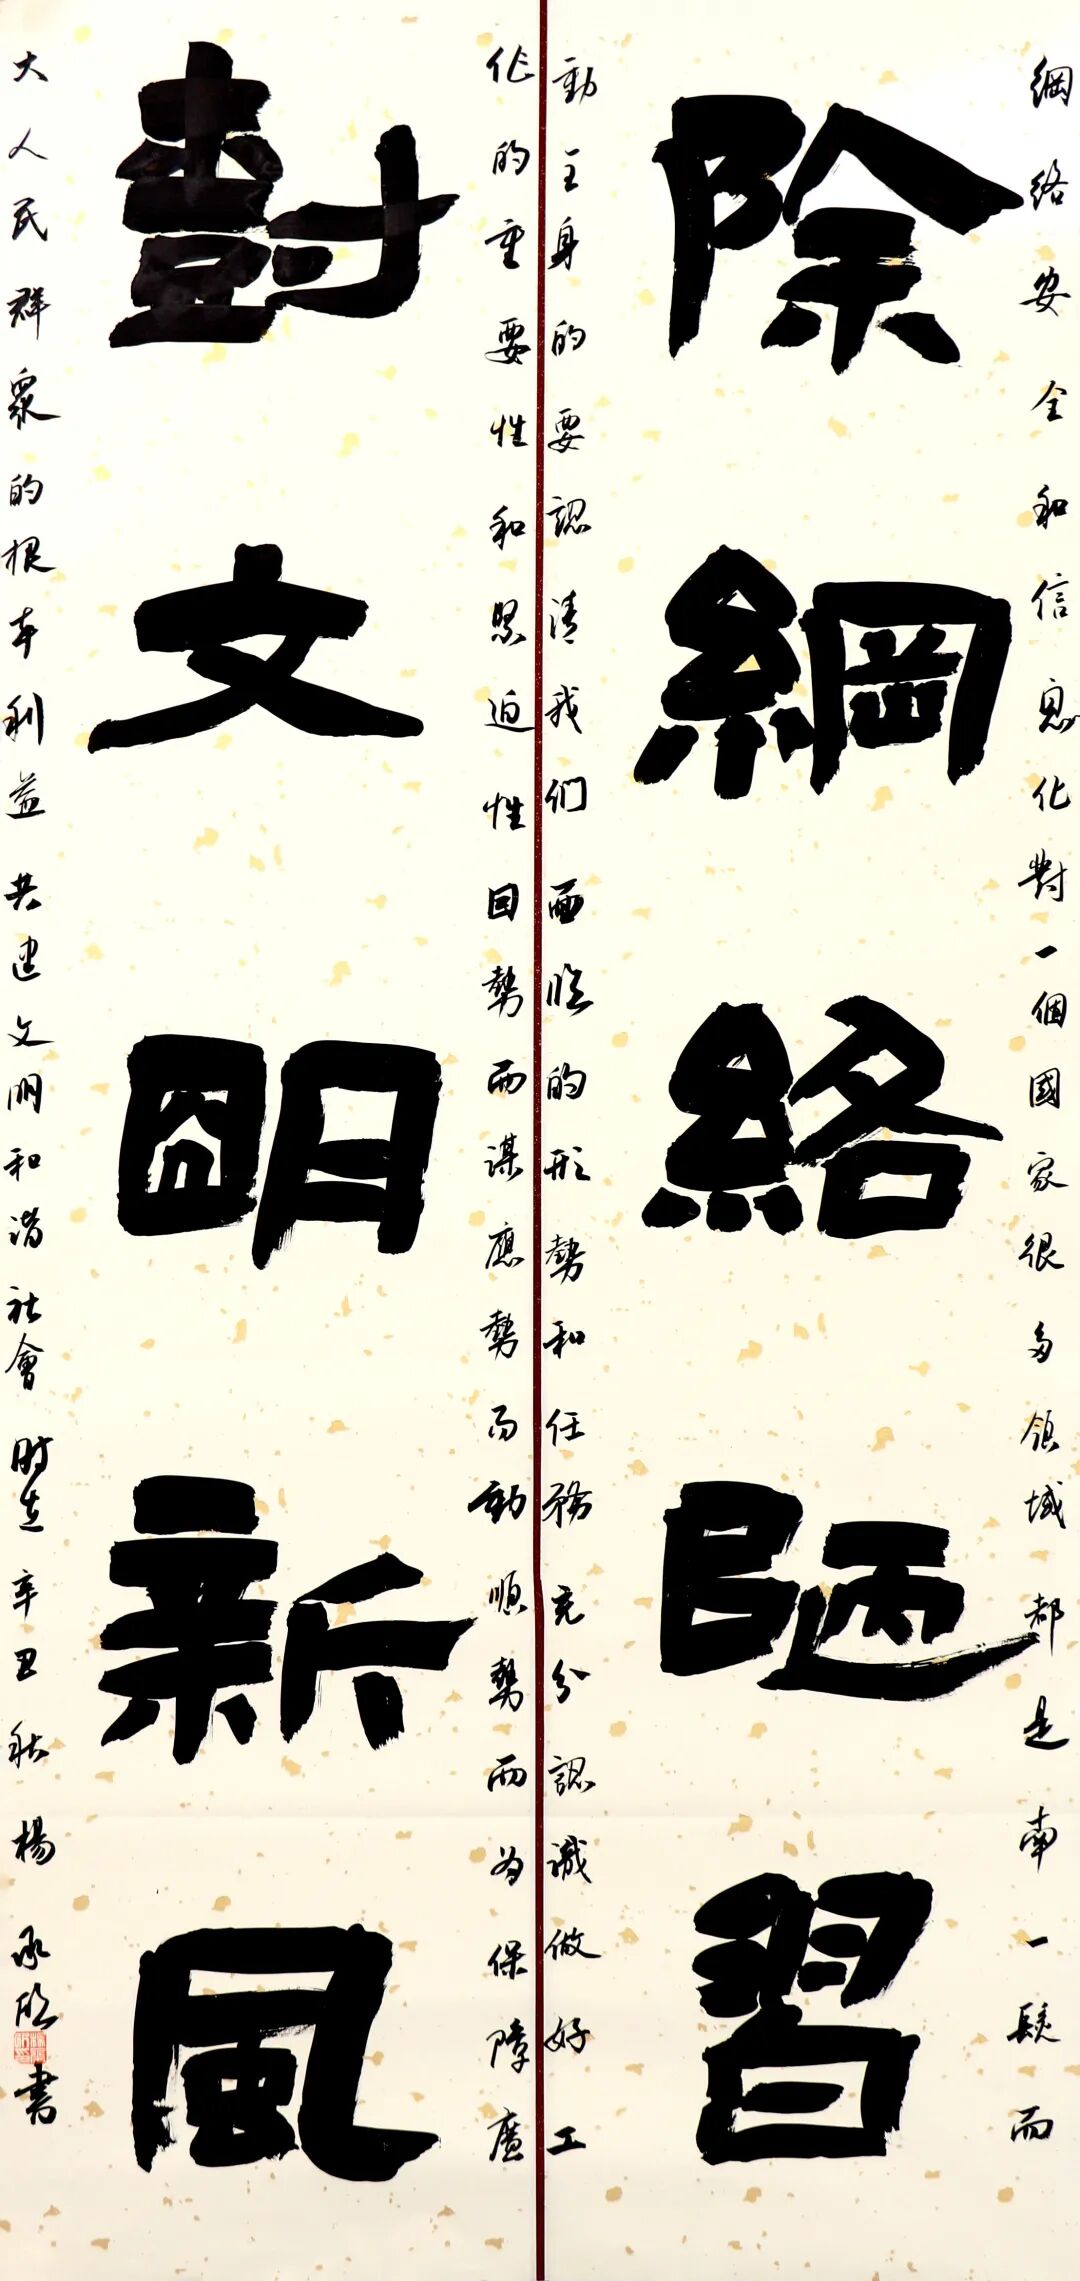 綱絡安全和信息化對一個國家很多領域都是牽一髮而
除綱絡陋習
動全身的要認清我们面臨的形勢和任務充分認識做好工
作的重要性和緊迫性因勢而謀應勢而動順勢而为保障廣
樹文明新風
大人民群眾的根本利益共建文明和谐社會時在辛丑秋楊承書